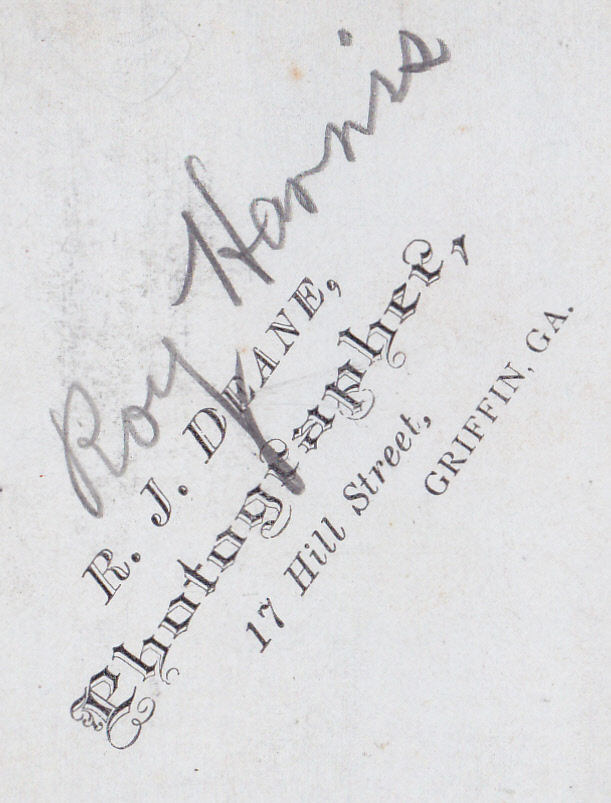 Roy Harris
R. J. DEANE,
Photographer,
17 Hill Street,
GRIFFIN, GA.